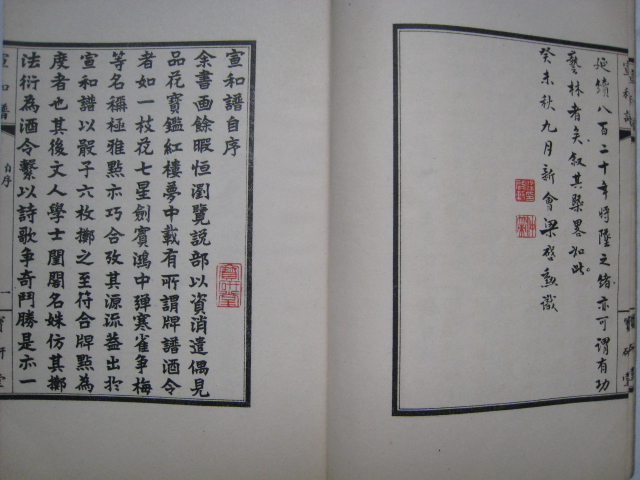 延續八百二十年將墜之緒亦可謂有功
藝林者矣叙其槩畧如此
癸未秋九月新會梁啓勳識
宣和譜自序
余書画餘暇恒瀏覽說部以資消遣偶見
品花寶鑑紅樓夢中載有所謂牌譜酒令
者如一枝花七星劍賓鴻中彈寒雀争梅
等名稱極雅點亦巧合攷其源流葢出於
宣和譜以骰子六枚擲之至符合牌點為
度者也其後文人學士閨閣名姝仿其擲
法衍為酒令繫以詩歌争奇鬥勝是亦一
宣和譜
自序
一
寶研堂